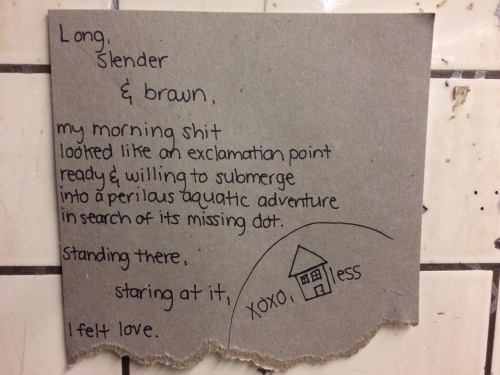 Long,
slender
& brown,
my morning shit
looked like an exclamation point
ready & willing to submerge
into a perilous aquatic adventure
in search of its missing dot.
standing there,
staring at it,
I felt love.
xoxo, less